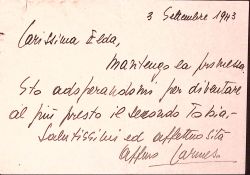 3 Settembre 1943
Carissima Elda,
Mantengo la promessa
Sto adoperandomi per diventare
al più presto il secondo Tobia,-
Salutissimi ed affettuosità